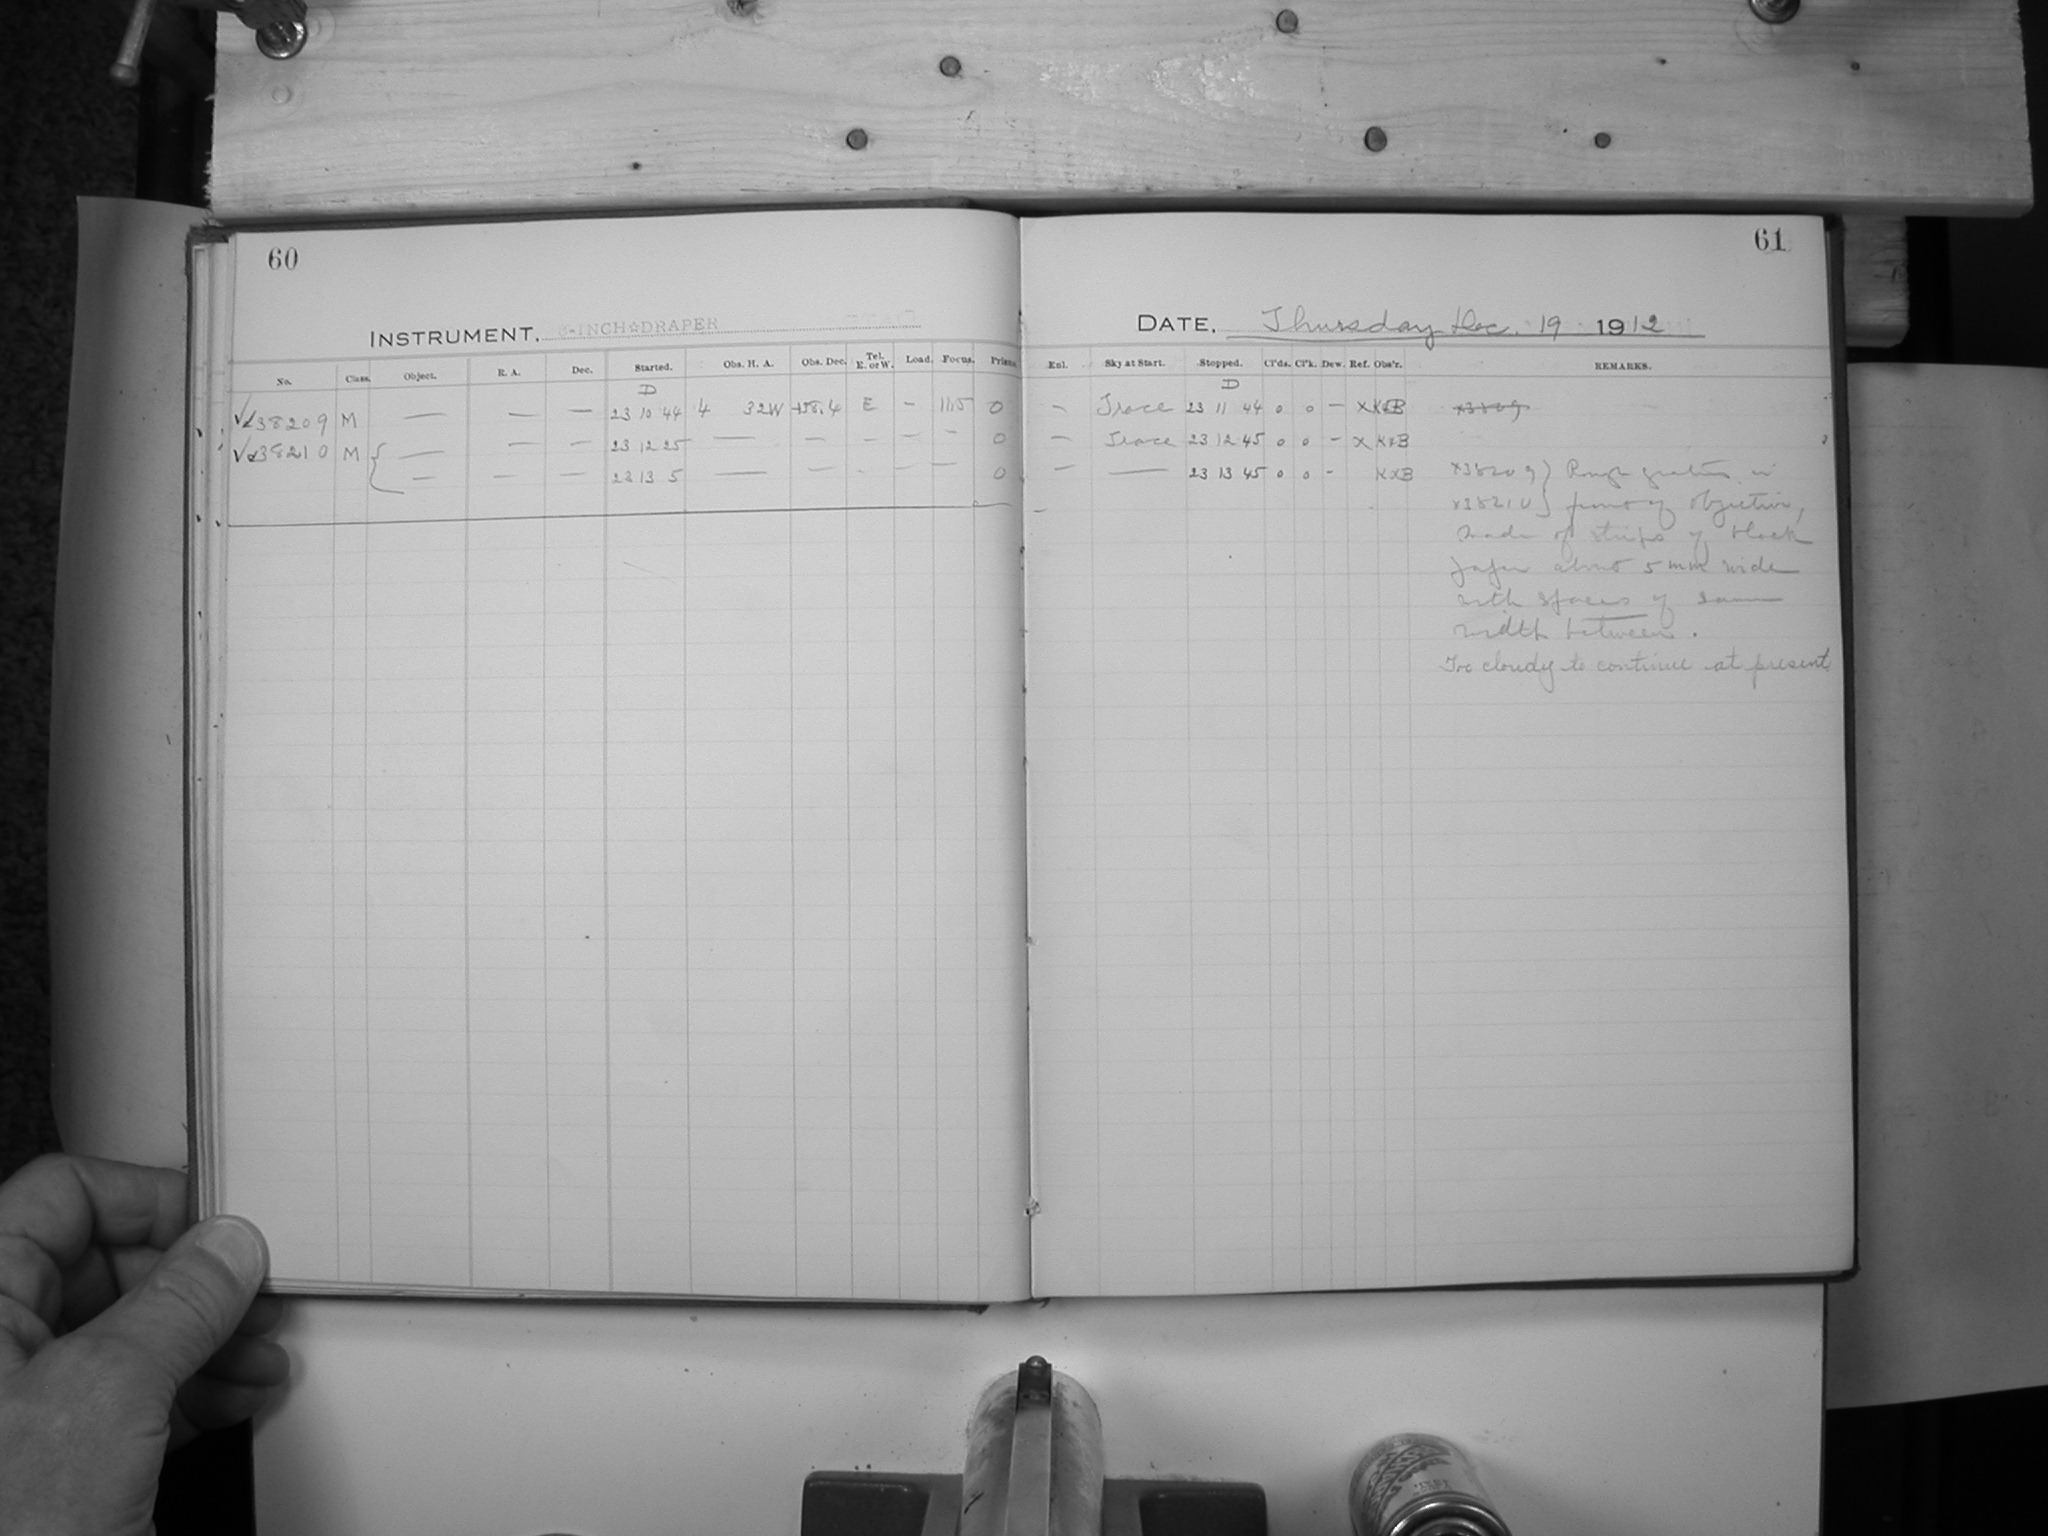 60
61
INSTRUMENT, 8-INCH☆DRAPER
DATE, Thursday Dec. 19 1912
No. Class. Object. R. A. Dec. Started. Obs. H. A. Obs. Dec. Tel. E. or W. Load. Focus. Prism.
Enl. Sky at Start. Stopped. Cl'ds. Cl'k. Dew. Ref. Obs'r. REMARKS.
D D
38209 M — — — 23 10 44 4 32W +58.4 E — 11.5 0 — Trace 23 11 44 0 0 — X KxB x38209
38210 M — — — 23 12 25 — — — — — 0 — Trace 23 12 45 0 0 — X KxB
— — — 23 13 5 — — — — — 0 — — 23 13 45 0 0 — KxB x38209 } Rough grating in
x38210 } front of objective,
made of strips of black
paper about 5 mm wide
with spaces of same
width between.
Too cloudy to continue at present